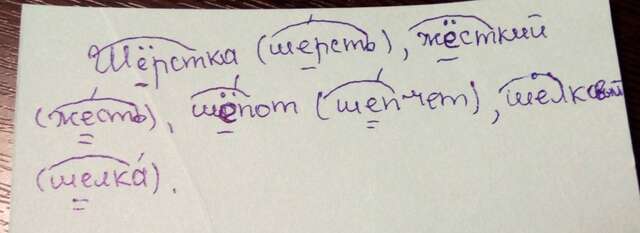 Шёрстка (шерсть), жёсткий
(жесть), шёпот (шепчет), шёлковый
(шелка́).